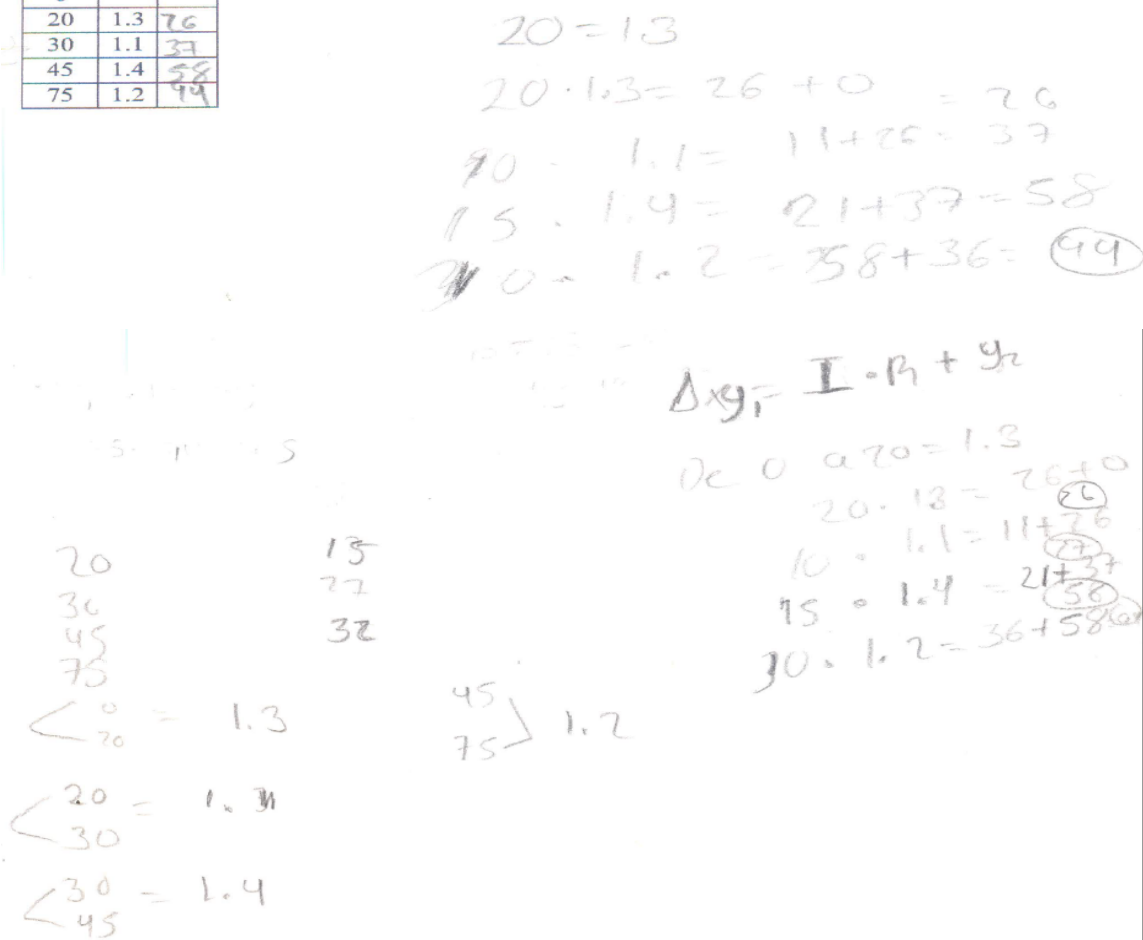 20 1.3 26
30 1.1 37
45 1.4 58
75 1.2 94
20 = 1.3
20 · 1.3 = 26 + 0 = 26
10 · 1.1 = 11 + 26 = 37
15 · 1.4 = 21 + 37 = 58
30 · 1.2 = 58 + 36 = 94
Δxy₁ = I · R + y₂
De 0 a 20 = 1.3
20 · 13 = 26 + 0
26
10 · 1.1 = 11 + 26
37
15 · 1.4 = 21 + 37
58
30 · 1.2 = 36 + 58
20 15
30 27
45 32
75
0
20 = 1.3
45
75 1.2
20
30 =
30
45 = 1.4